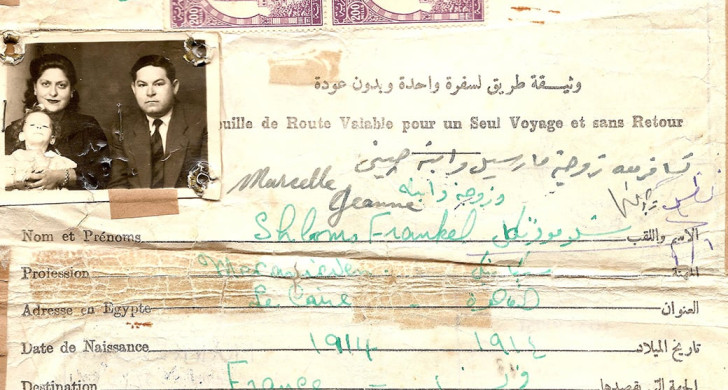 200 200
وثيقة طريق لسفرة واحدة وبدون عودة
uille de Route Valable pour un Seul Voyage et sans Retour
تسافر معه زوجته مارسيل وابنته چيني
Marcelle
Jeanne
وزوجته وابنته
Nom et Prénoms Shlomo Frankel شلومو فرنكل الاسم واللقب
Profession Mécanicien ميكانيكي المهنة
Adresse en Egypte Le Caire القاهرة العنوان
Date de Naissance 1914 ١٩١٤ تاريخ الميلاد
Destination France فرنسا الجهة التي يقصدها